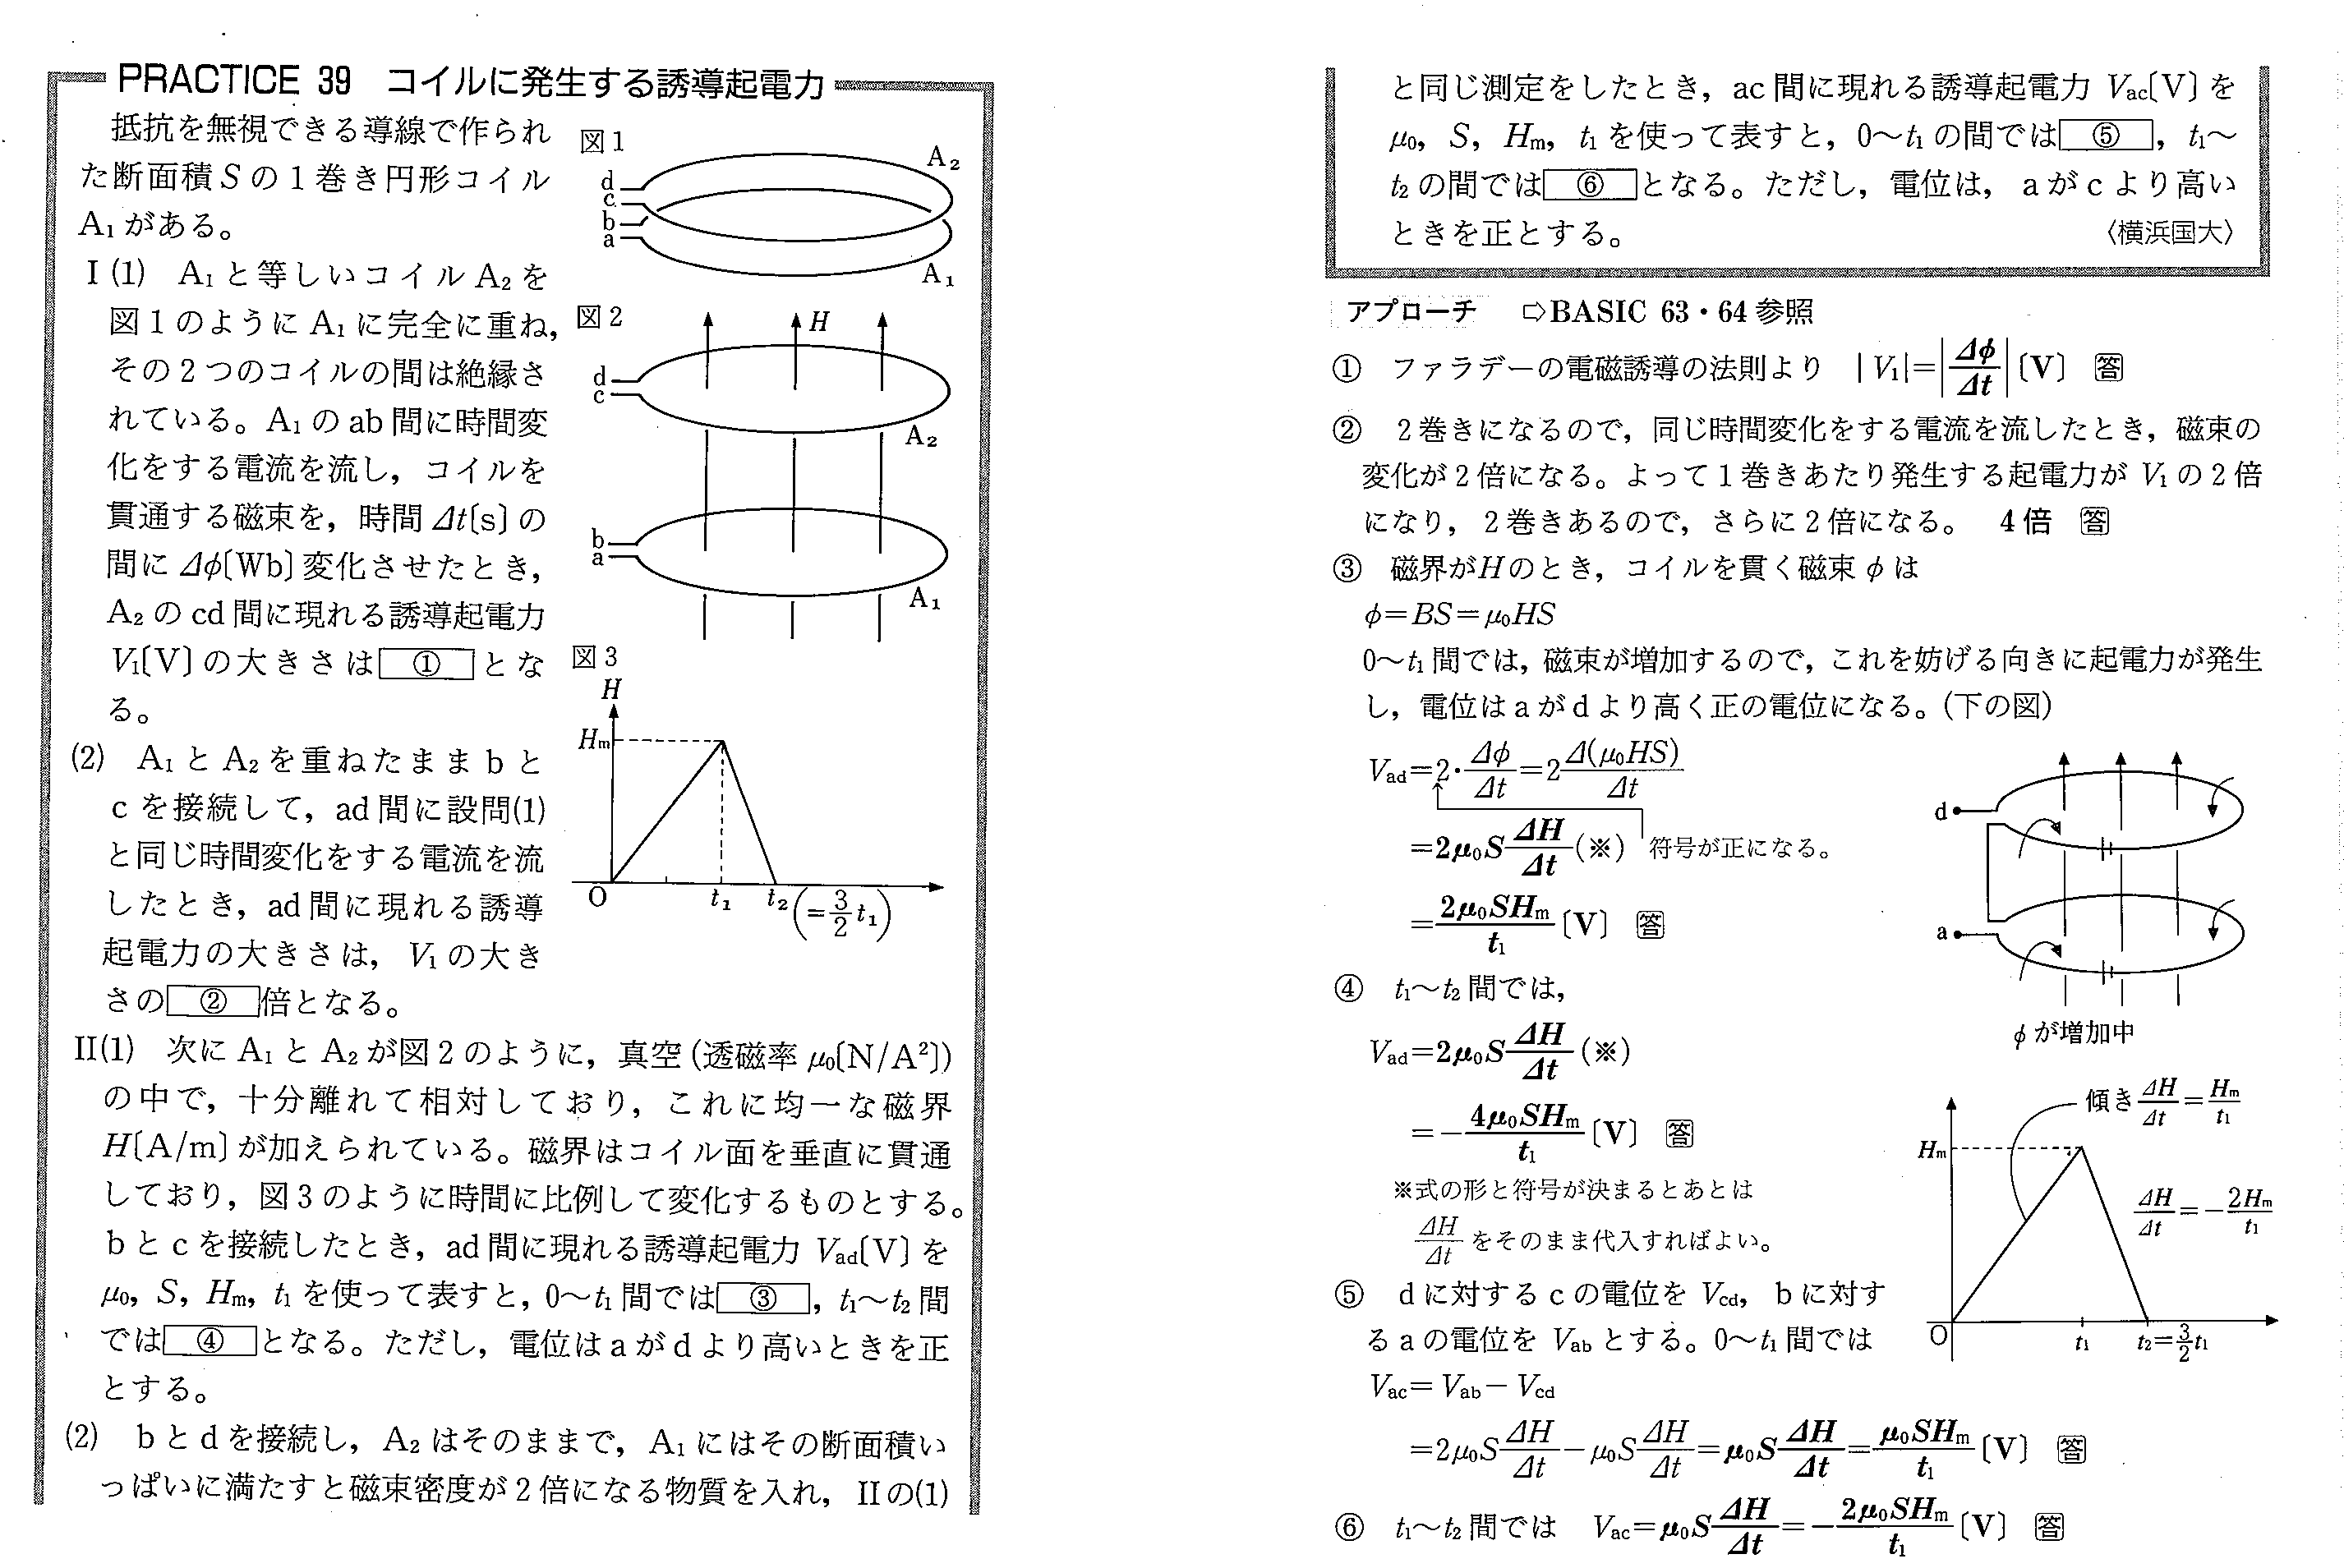 PRACTICE 39 コイルに発生する誘導起電力
抵抗を無視できる導線で作られ
た断面積Sの1巻き円形コイル
A₁がある。
I(1) A₁と等しいコイルA₂を
図1のようにA₁に完全に重ね,
その2つのコイルの間は絶縁さ
れている。A₁のab間に時間変
化をする電流を流し,コイルを
貫通する磁束を,時間Δt[s]の
間にΔφ[Wb]変化させたとき,
A₂のcd間に現れる誘導起電力
V₁[V]の大きさは ① とな
る。
(2) A₁とA₂を重ねたままbと
cを接続して,ad間に設問(1)
と同じ時間変化をする電流を流
したとき,ad間に現れる誘導
起電力の大きさは,V₁の大き
さの ② 倍となる。
図1
A₂
d
c
b
a
A₁
図2
H
d
c
A₂
b
a
A₁
図3
H
Hm
O
t₁
t₂(=3/2 t₁)
II(1) 次にA₁とA₂が図2のように,真空(透磁率μ₀[N/A²])
の中で,十分離れて相対しており,これに均一な磁界
H[A/m]が加えられている。磁界はコイル面を垂直に貫通
しており,図3のように時間に比例して変化するものとする。
bとcを接続したとき,ad間に現れる誘導起電力Vad[V]を
μ₀,S,Hm,t₁を使って表すと,0〜t₁間では ③ ,t₁〜t₂間
では ④ となる。ただし,電位はaがdより高いときを正
とする。
(2) bとdを接続し,A₂はそのままで,A₁にはその断面積い
っぱいに満たすと磁束密度が2倍になる物質を入れ,IIの(1)
と同じ測定をしたとき,ac間に現れる誘導起電力Vac[V]を
μ₀,S,Hm,t₁を使って表すと,0〜t₁の間では ⑤ ,t₁〜
t₂の間では ⑥ となる。ただし,電位は,aがcより高い
ときを正とする。 〈横浜国大〉
アプローチ ⇨BASIC 63・64参照
① ファラデーの電磁誘導の法則より |V₁|=|Δφ/Δt|[V] 答
② 2巻きになるので,同じ時間変化をする電流を流したとき,磁束の
変化が2倍になる。よって1巻きあたり発生する起電力がV₁の2倍
になり,2巻きあるので,さらに2倍になる。 4倍 答
③ 磁界がHのとき,コイルを貫く磁束φは
φ=BS=μ₀HS
0〜t₁間では,磁束が増加するので,これを妨げる向きに起電力が発生
し,電位はaがdより高く正の電位になる。(下の図)
Vad=2·Δφ/Δt=2Δ(μ₀HS)/Δt
=2μ₀SΔH/Δt(※) 符号が正になる。
=2μ₀SHm/t₁[V] 答
d
a
φが増加中
④ t₁〜t₂間では,
Vad=2μ₀SΔH/Δt(※)
=−4μ₀SHm/t₁[V] 答
※式の形と符号が決まるとあとは
ΔH/Δtをそのまま代入すればよい。
傾きΔH/Δt=Hm/t₁
Hm
ΔH/Δt=−2Hm/t₁
O
t₁
t₂=3/2 t₁
⑤ dに対するcの電位をVcd,bに対す
るaの電位をVabとする。0〜t₁間では
Vac=Vab−Vcd
=2μ₀SΔH/Δt−μ₀SΔH/Δt=μ₀SΔH/Δt=μ₀SHm/t₁[V] 答
⑥ t₁〜t₂間では Vac=μ₀SΔH/Δt=−2μ₀SHm/t₁[V] 答